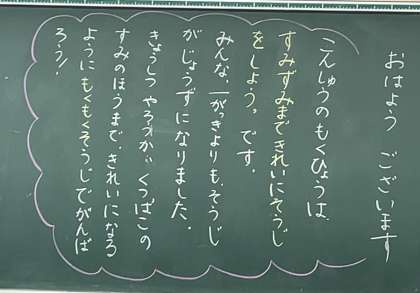 おはよう ございます
こんしゅうのもくひょうは、
すみずみまできれいにそうじ
をしよう。です。
みんな、一がっきよりも、そうじ
がじょうずになりました。
きょうしつやろうか、くつばこの
すみのほうまで、きれいになる
ようにもくもくそうじでがんば
ろう!